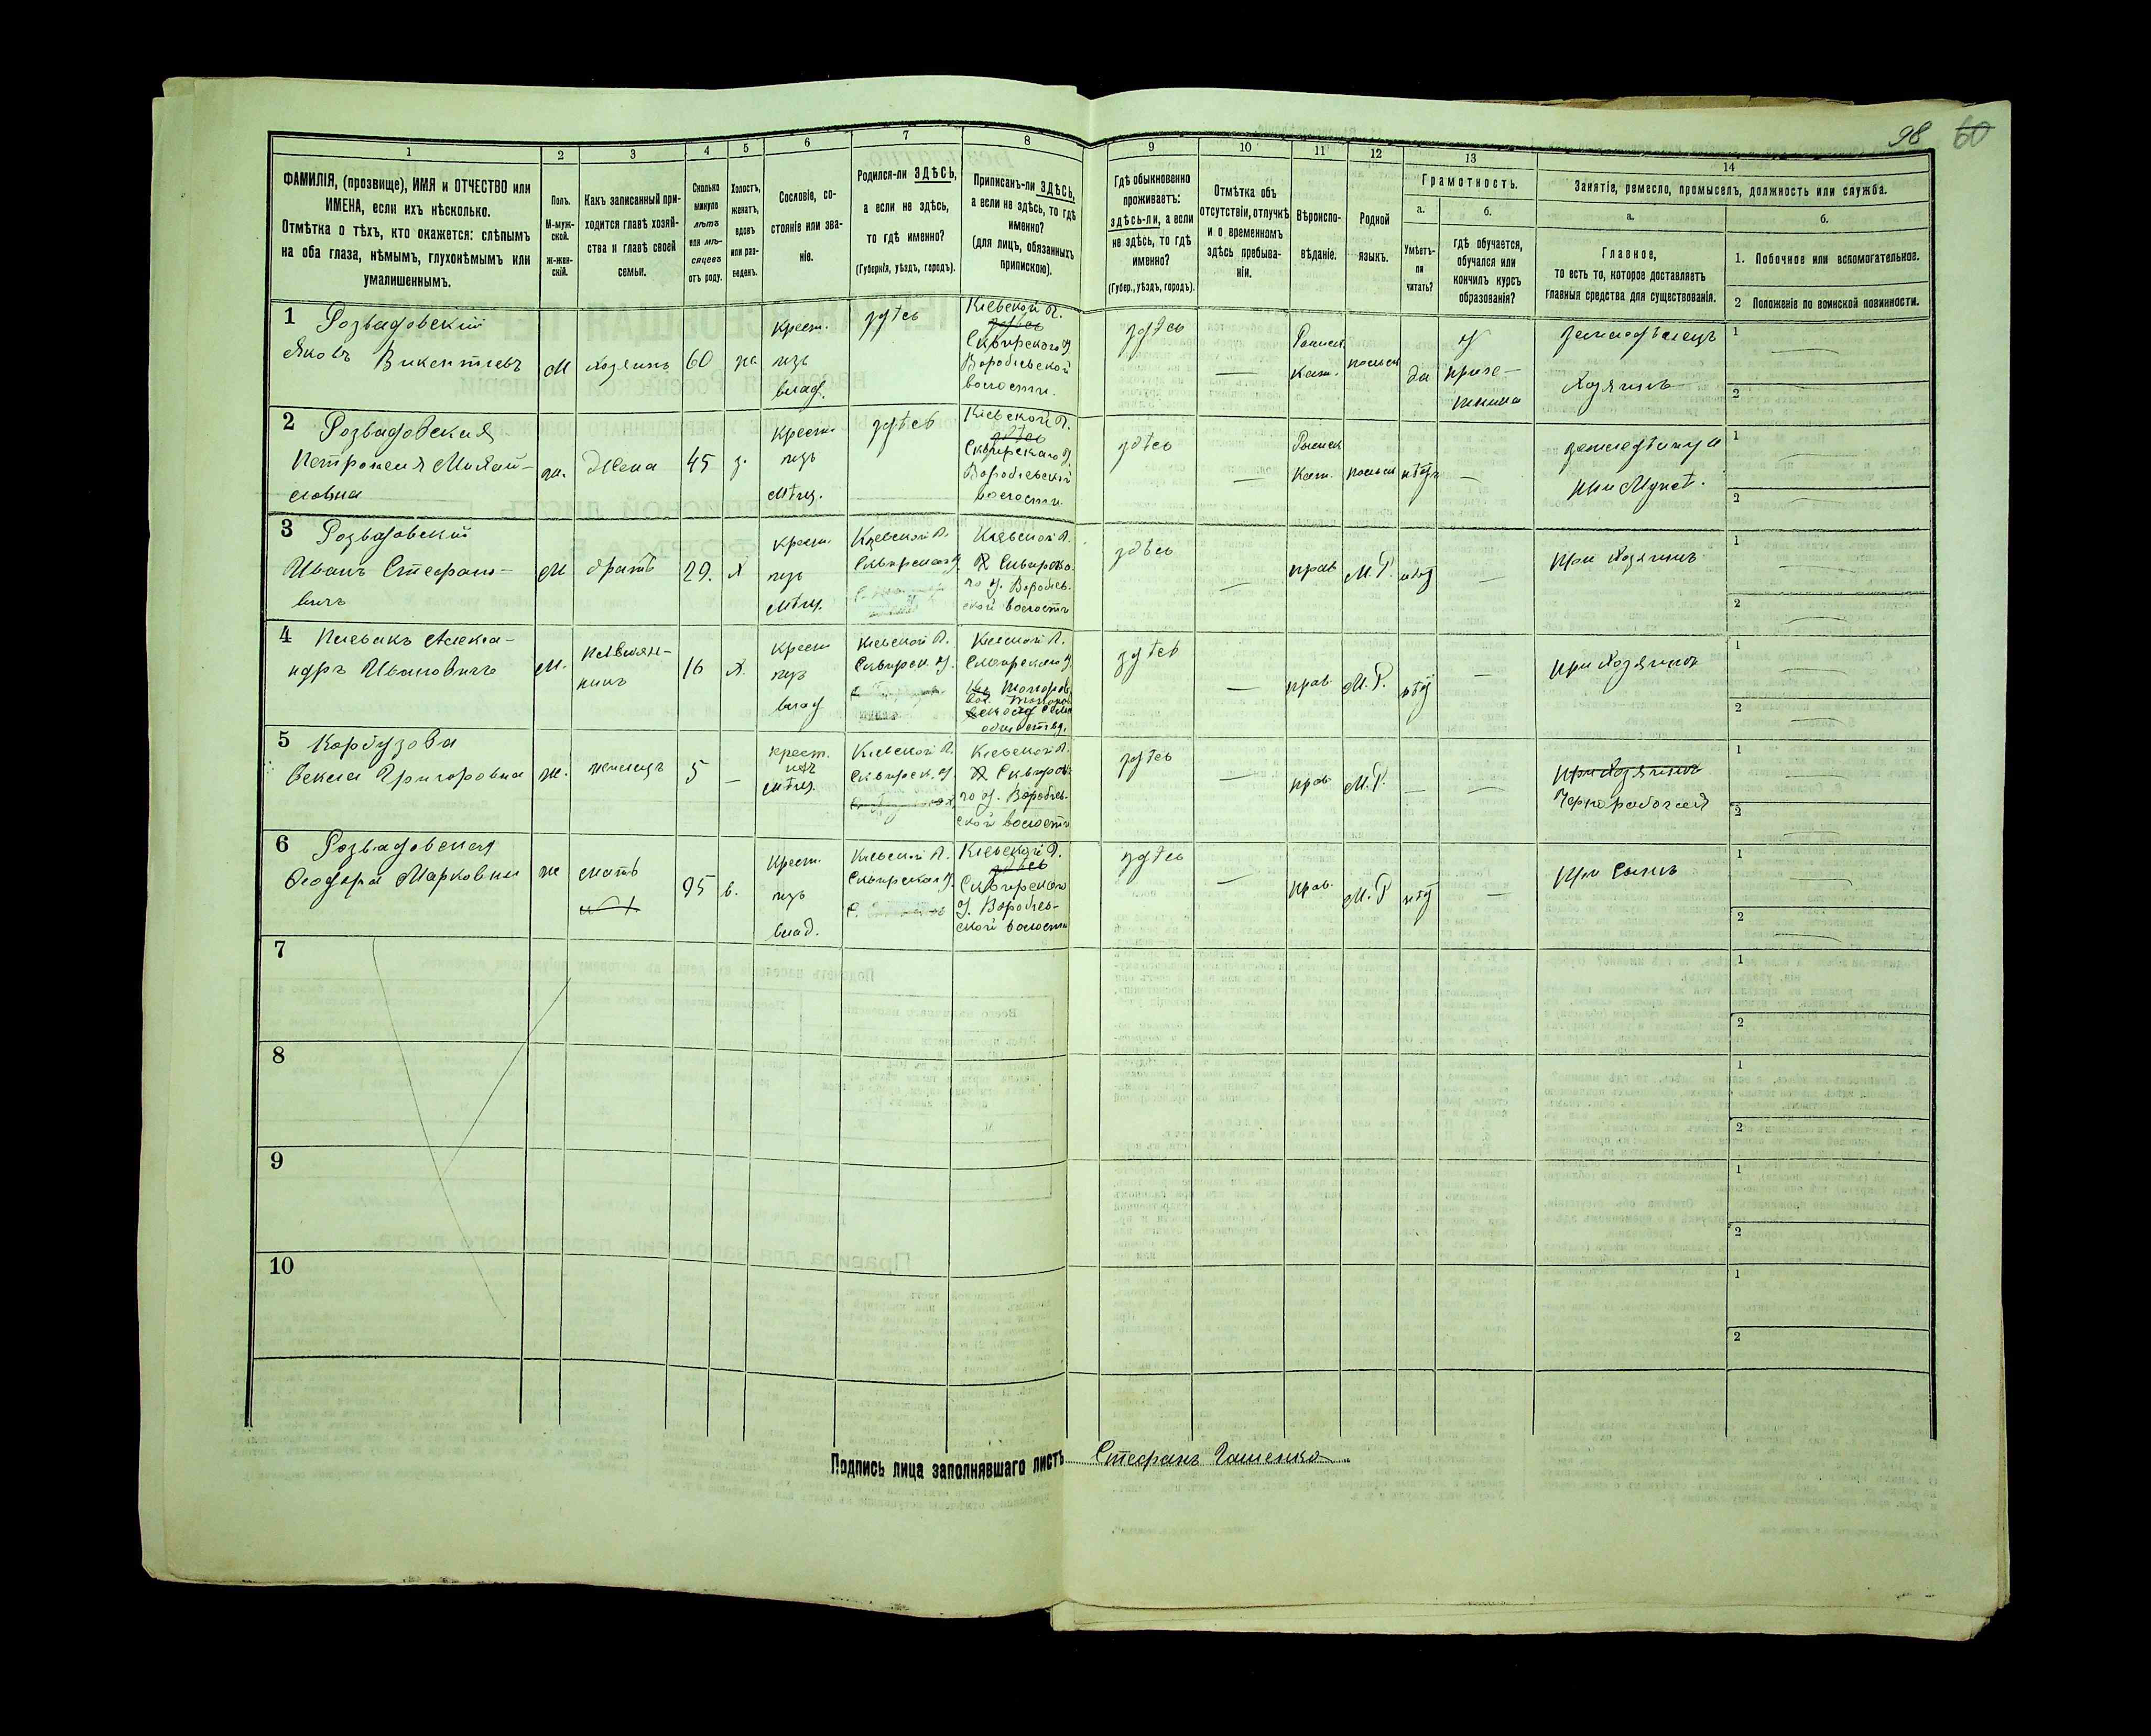 98 60
1 2 3 4 5 6 7 8 9 10 11 12 13 14
ФАМИЛІЯ, (прозвище), ИМЯ и ОТЧЕСТВО или
ИМЕНА, если ихъ нѣсколько.
Отмѣтка о тѣхъ, кто окажется: слѣпымъ
на оба глаза, нѣмымъ, глухонѣмымъ или
умалишеннымъ.
Полъ.
М-муж-
ской.
Ж-жен-
скій.
Какъ записанный при-
ходится главѣ хозяй-
ства и главѣ своей
семьи.
Сколько
минуло
лѣтъ
или мѣ-
сяцевъ
отъ роду.
Холостъ,
женатъ,
вдовъ
или раз-
веденъ.
Сословіе, со-
стояніе или зва-
ніе.
Родился-ли ЗДѢСЬ,
а если не здѣсь,
то гдѣ именно?
(Губернія, уѣздъ, городъ).
Приписанъ-ли ЗДѢСЬ,
а если не здѣсь, то гдѣ
именно?
(для лицъ, обязанныхъ
припискою).
Гдѣ обыкновенно
проживаетъ:
здѣсь-ли, а если
не здѣсь, то гдѣ
именно?
(Губер., уѣздъ, городъ).
Отмѣтка объ
отсутствіи, отлучкѣ
и о временномъ
здѣсь пребыва-
ніи.
Вѣроиспо-
вѣданіе.
Родной
языкъ.
Грамотность.
а.
Умѣетъ-
ли
читать?
б.
гдѣ обучается,
обучался или
кончилъ курсъ
образованія?
Занятіе, ремесло, промыселъ, должность или служба.
а.
Главное,
то есть то, которое доставляетъ
главныя средства для существованія.
б.
1. Побочное или вспомогательное.
2 Положеніе по воинской повинности.
1 Розвадовскій
Яковъ Викентіевъ
М
хозяинъ
60
крест.
изъ
влад.
здѣсь
Кіевской г.
здѣсь
Сквирского у.
Воробіевской
волости.
здѣсь
—
Римск
Кат.
польск
да
земледѣлецъ
Хозяинъ
1
2
2 Розвадовская
Петронеля Михай-
ловна
ж.
Жена
45
з.
Крест.
изъ
мѣщ.
здѣсь
Кіевской г.
здѣсь
Сквирскаго у.
Воробіевской
волости
здѣсь
—
Римск
Кат.
польск
нѣтъ
—
при Мужѣ.
1
2
3 Розвадовскій
Иванъ Стефано-
вичъ
М
братъ
29.
х
крест.
изъ
мѣщ.
Кіевской г.
Сквирскаго у.
Кіевской г.
Сквирска-
го у. Воробіев-
ской волости
здѣсь
—
прав
М. Р.
нѣт
—
при Хозяинѣ
1
2
4 Плевакъ Алекса-
ндръ Ивановичъ
м.
племян-
никъ
16
х.
крест
изъ
влад
Кіевской г.
Сквирск. у.
Кіевской г.
Сквирскаго у.
здѣсь
—
прав.
М. Р.
нѣт
—
при Хозяинѣ
1
2
5 Карбузова
Векла Григоровна
ж.
5
—
крест.
изъ
мѣщ.
Кіевской г.
Сквирск. у.
Кіевской г.
Сквирска-
го у. Воробіев-
ской волости
здѣсь
—
прав
М. Р.
—
—
при Хозяинѣ
Чернорабочая
1
2
6 Розвадовская
Феодора Марковна
ж
мать
95
в.
Крест.
изъ
влад.
Кіевской г.
Сквирскаго у.
Кіевской г.
здѣсь
Сквирскаго
у. Воробіев-
ской волости
здѣсь
—
прав.
М. Р
нѣт
—
при Сынѣ
1
2
7
1
2
8
1
2
9
1
2
10
1
2
Подпись лица заполнявшаго листъ Стефанъ